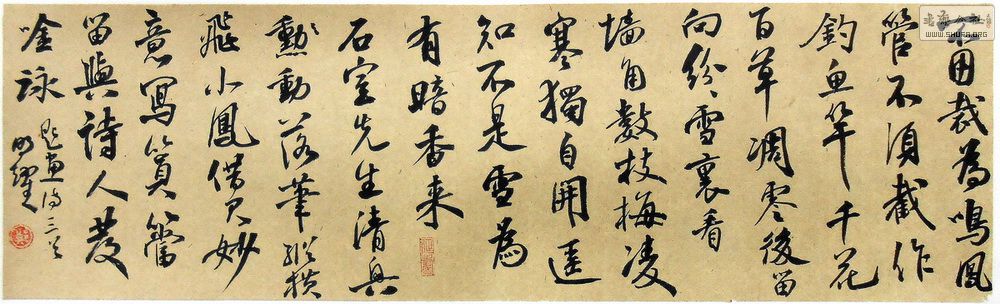 不用裁為鳴鳳
管不須截作
釣魚竿千花
百草凋零後留
向紛〻雪裏看
墻角數枝梅凌
寒獨自開遥
知不是雪為
有暗香来
石室先生清興
動落筆縱横
飛小鳳借君妙
意寫篔簹
留與詩人發
唫詠
題畫詩三首
WWW.SHUFA.ORG